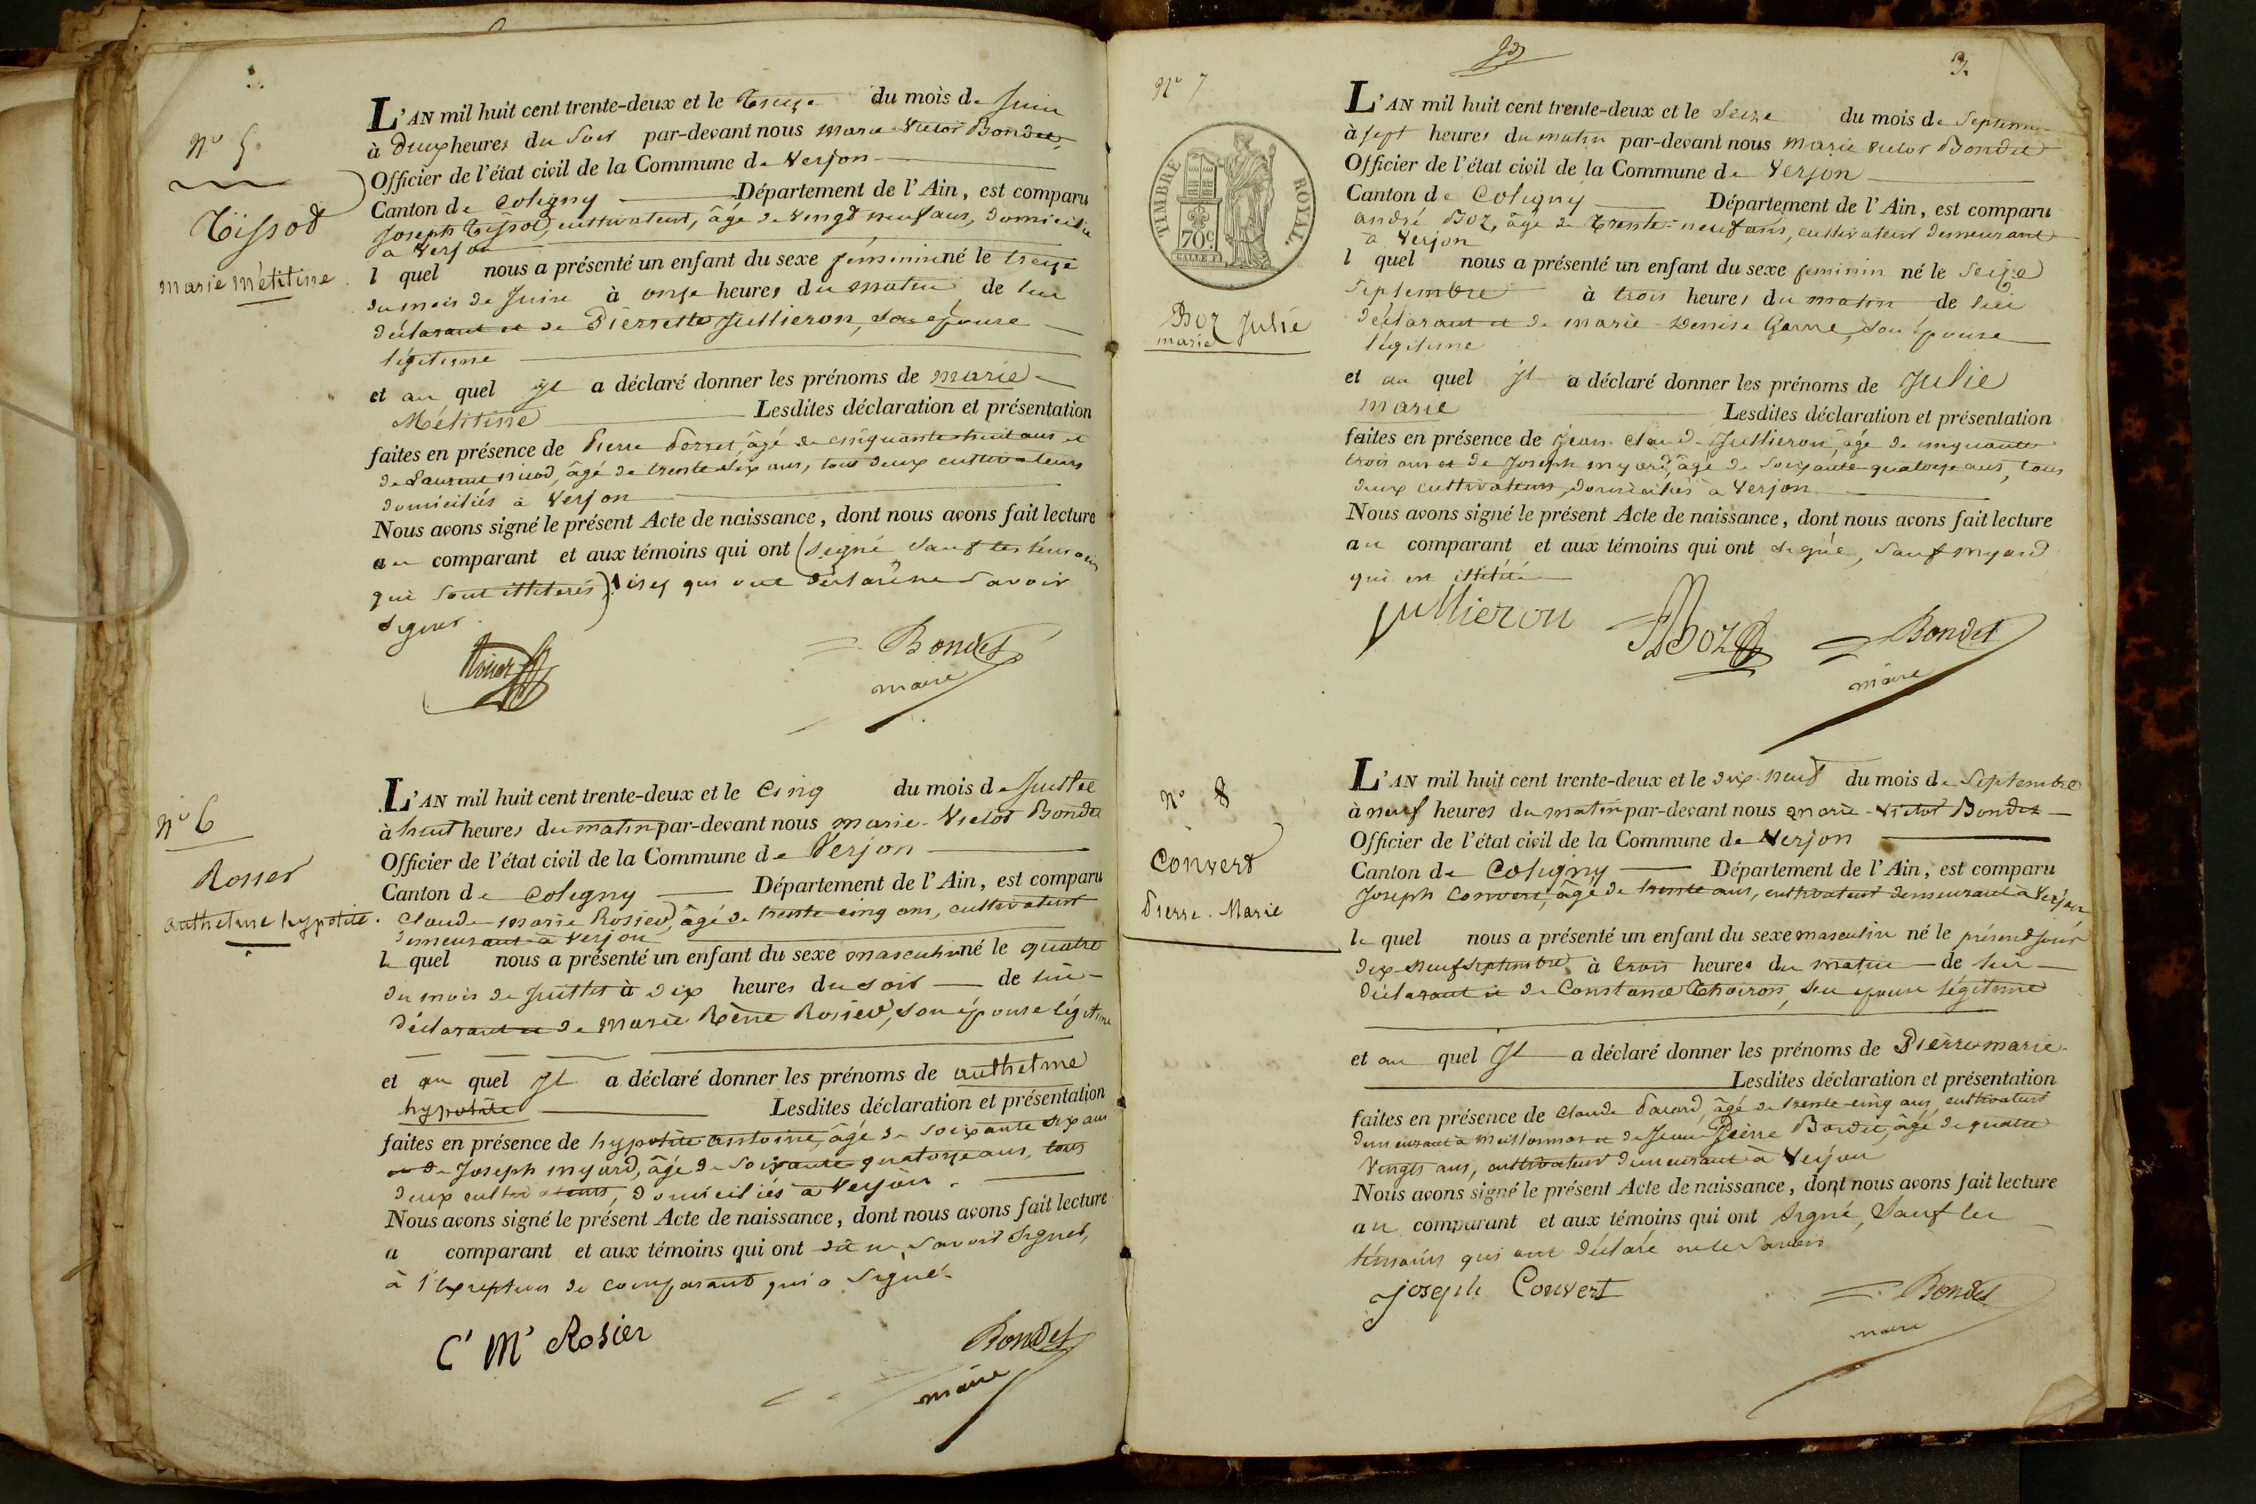 N° 5.
Tissot
marie Mélitine
L'AN mil huit cent trente-deux et le treize du mois de Juin
à deux heures du soir par-devant nous Marie-Victor Bondet,
Officier de l'état civil de la Commune de Verjon
Canton de Coligny Département de l'Ain, est comparu
Joseph Tissot, cultivateur, âgé de vingt neuf ans, domicilié
à Verjon
l quel nous a présenté un enfant du sexe féminin né le treize
du mois de Juin à onze heures du matin de lui
déclarant et de Pierrette Jullieron, son épouse
légitime
et au quel il a déclaré donner les prénoms de marie
Mélitine Lesdites déclaration et présentation
faites en présence de Pierre âgé de cinquante huit ans et
de Laurent nicod, âgé de trente six ans, tous deux cultivateurs
domiciliés à Verjon
Nous avons signé le présent Acte de naissance, dont nous avons fait lecture
au comparant et aux témoins qui ont (signé sauf les témoins
qui sont illiterés) qui ont déclaré ne savoir
signer.
Bondet
maire
N° 6
Rosier
anthelme hypolite.
L'AN mil huit cent trente-deux et le cinq du mois de Juillet
à huit heures du matin par-devant nous marie-Victor Bondet
Officier de l'état civil de la Commune de Verjon
Canton de Coligny Département de l'Ain, est comparu
Claude-marie Rosier, âgé de trente cinq ans, cultivateur
demeurant à Verjon
le quel nous a présenté un enfant du sexe masculin né le quatre
du mois de Juillet à dix heures du soir de lui
déclarant et de Marie Rosier, son épouse légitime
et au quel il a déclaré donner les prénoms de anthelme
hypolite Lesdites déclaration et présentation
faites en présence de hypolite antoine, âgé de soixante six ans
et de Joseph myard, âgé de soixante quatorze ans, tous
deux cultivateurs, domiciliés à Verjon.
Nous avons signé le présent Acte de naissance, dont nous avons fait lecture
a comparant et aux témoins qui ont dit ne savoir signer,
à l'exception du comparant qui a signé.
C' M' Rosier
Bondet
maire
3.
N° 7
TIMBRE ROYAL.
70 c
Boz Julie
marie
L'AN mil huit cent trente-deux et le seize du mois de Septembre
à sept heures du matin par-devant nous marie victor Bondet
Officier de l'état civil de la Commune de Verjon
Canton de Coligny Département de l'Ain, est comparu
andré Boz, âgé de trente-neuf ans, cultivateur demeurant
à Verjon
l quel nous a présenté un enfant du sexe feminin né le seize
Septembre à trois heures du matin de lui
déclarant et de marie-Denise son épouse
légitime
et au quel il a déclaré donner les prénoms de Julie
marie Lesdites déclaration et présentation
faites en présence de Jean-Claude Jullieron, âgé de cinquante
trois ans et de Joseph myard, âgé de soixante-quatorze ans, tous
deux cultivateurs, domiciliés à Verjon
Nous avons signé le présent Acte de naissance, dont nous avons fait lecture
au comparant et aux témoins qui ont signé, sauf myard
qui est illitéré
jullieron Boz Bondet
maire
N° 8
Convert
Pierre-Marie
L'AN mil huit cent trente-deux et le dix-neuf du mois de Septembre
à neuf heures du matin par-devant nous marie-Victor Bondet
Officier de l'état civil de la Commune de Verjon
Canton de Coligny Département de l'Ain, est comparu
Joseph Convert, âgé de trente ans, cultivateur demeurant à Verjon
le quel nous a présenté un enfant du sexe masculin né le présent jour
dix-neuf Septembre à trois heures du matin de lui
déclarant et de Constance Thoiron, son épouse légitime
et au quel il a déclaré donner les prénoms de Pierre marie
Lesdites déclaration et présentation
faites en présence de Claude âgé de trente-cinq ans, cultivateur
demeurant à et de Jean Pierre Bordet, âgé de quatre
vingts ans, cultivateur demeurant à Verjon
Nous avons signé le présent Acte de naissance, dont nous avons fait lecture
au comparant et aux témoins qui ont signé, sauf les
témoins qui ont déclaré ne le savoir
joseph Convert
Bondet
maire